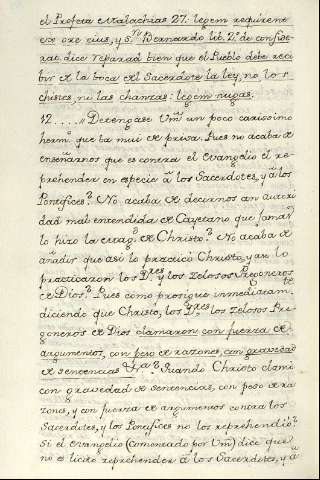 el Profeta Malachias 27. legem requirent
ex ore eius, y S.n Bernardo lib. 2.º de conside-
rat. dice reparad bien que el Pueblo debe reci-
bir de la boca del Sacerdote la ley, no los
chistes, ni las chanzas: legem nugas.
12.....,, Detengase Vm.d un poco carissimo
herm.º que va mui de prisa. Pues no acaba de
enseñarnos que es contra el evangelio el re-
prehender en especie á los Sacerdotes, y á los
Pontifices? No acaba de decirnos an autori-
dad mal entendida de Cayetano que jamas
lo hizo la mag.d de Christo? No acaba de
añadir que asi lo practicó Christo, y asi lo
practicaron los D.res y los zelosos Pregoneros
de Dios? Pues como prosigue inmediatam.te
diciendo que Christo, los D.res los zelosos Pre-
goneros de Dios clamaron con fuerza de
argumentos, con peso de razones, con gravedad
de sentencias &.a? Quando Christo clamó
con gravedad de sentencias, con peso de ra-
zones, y con fuerza de argumentos contra los
Sacerdotes, y los Pontifices no los reprehendió?
Si el evangelio (comentado por Vm.d) dice que
no es licito reprehender á los Sacerdotes, y á